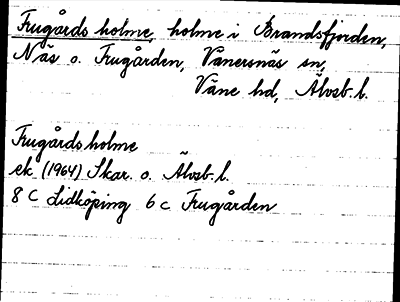 Frugårds holme, holme i Brandsfjorden,
Näs o. Frugården, Vänersnäs sn,
Väne hd, Älvsb. l.
Frugårdsholme
ek (1964) Skar. o. Älvsb. l.
8 C Lidköping 6 c Frugården